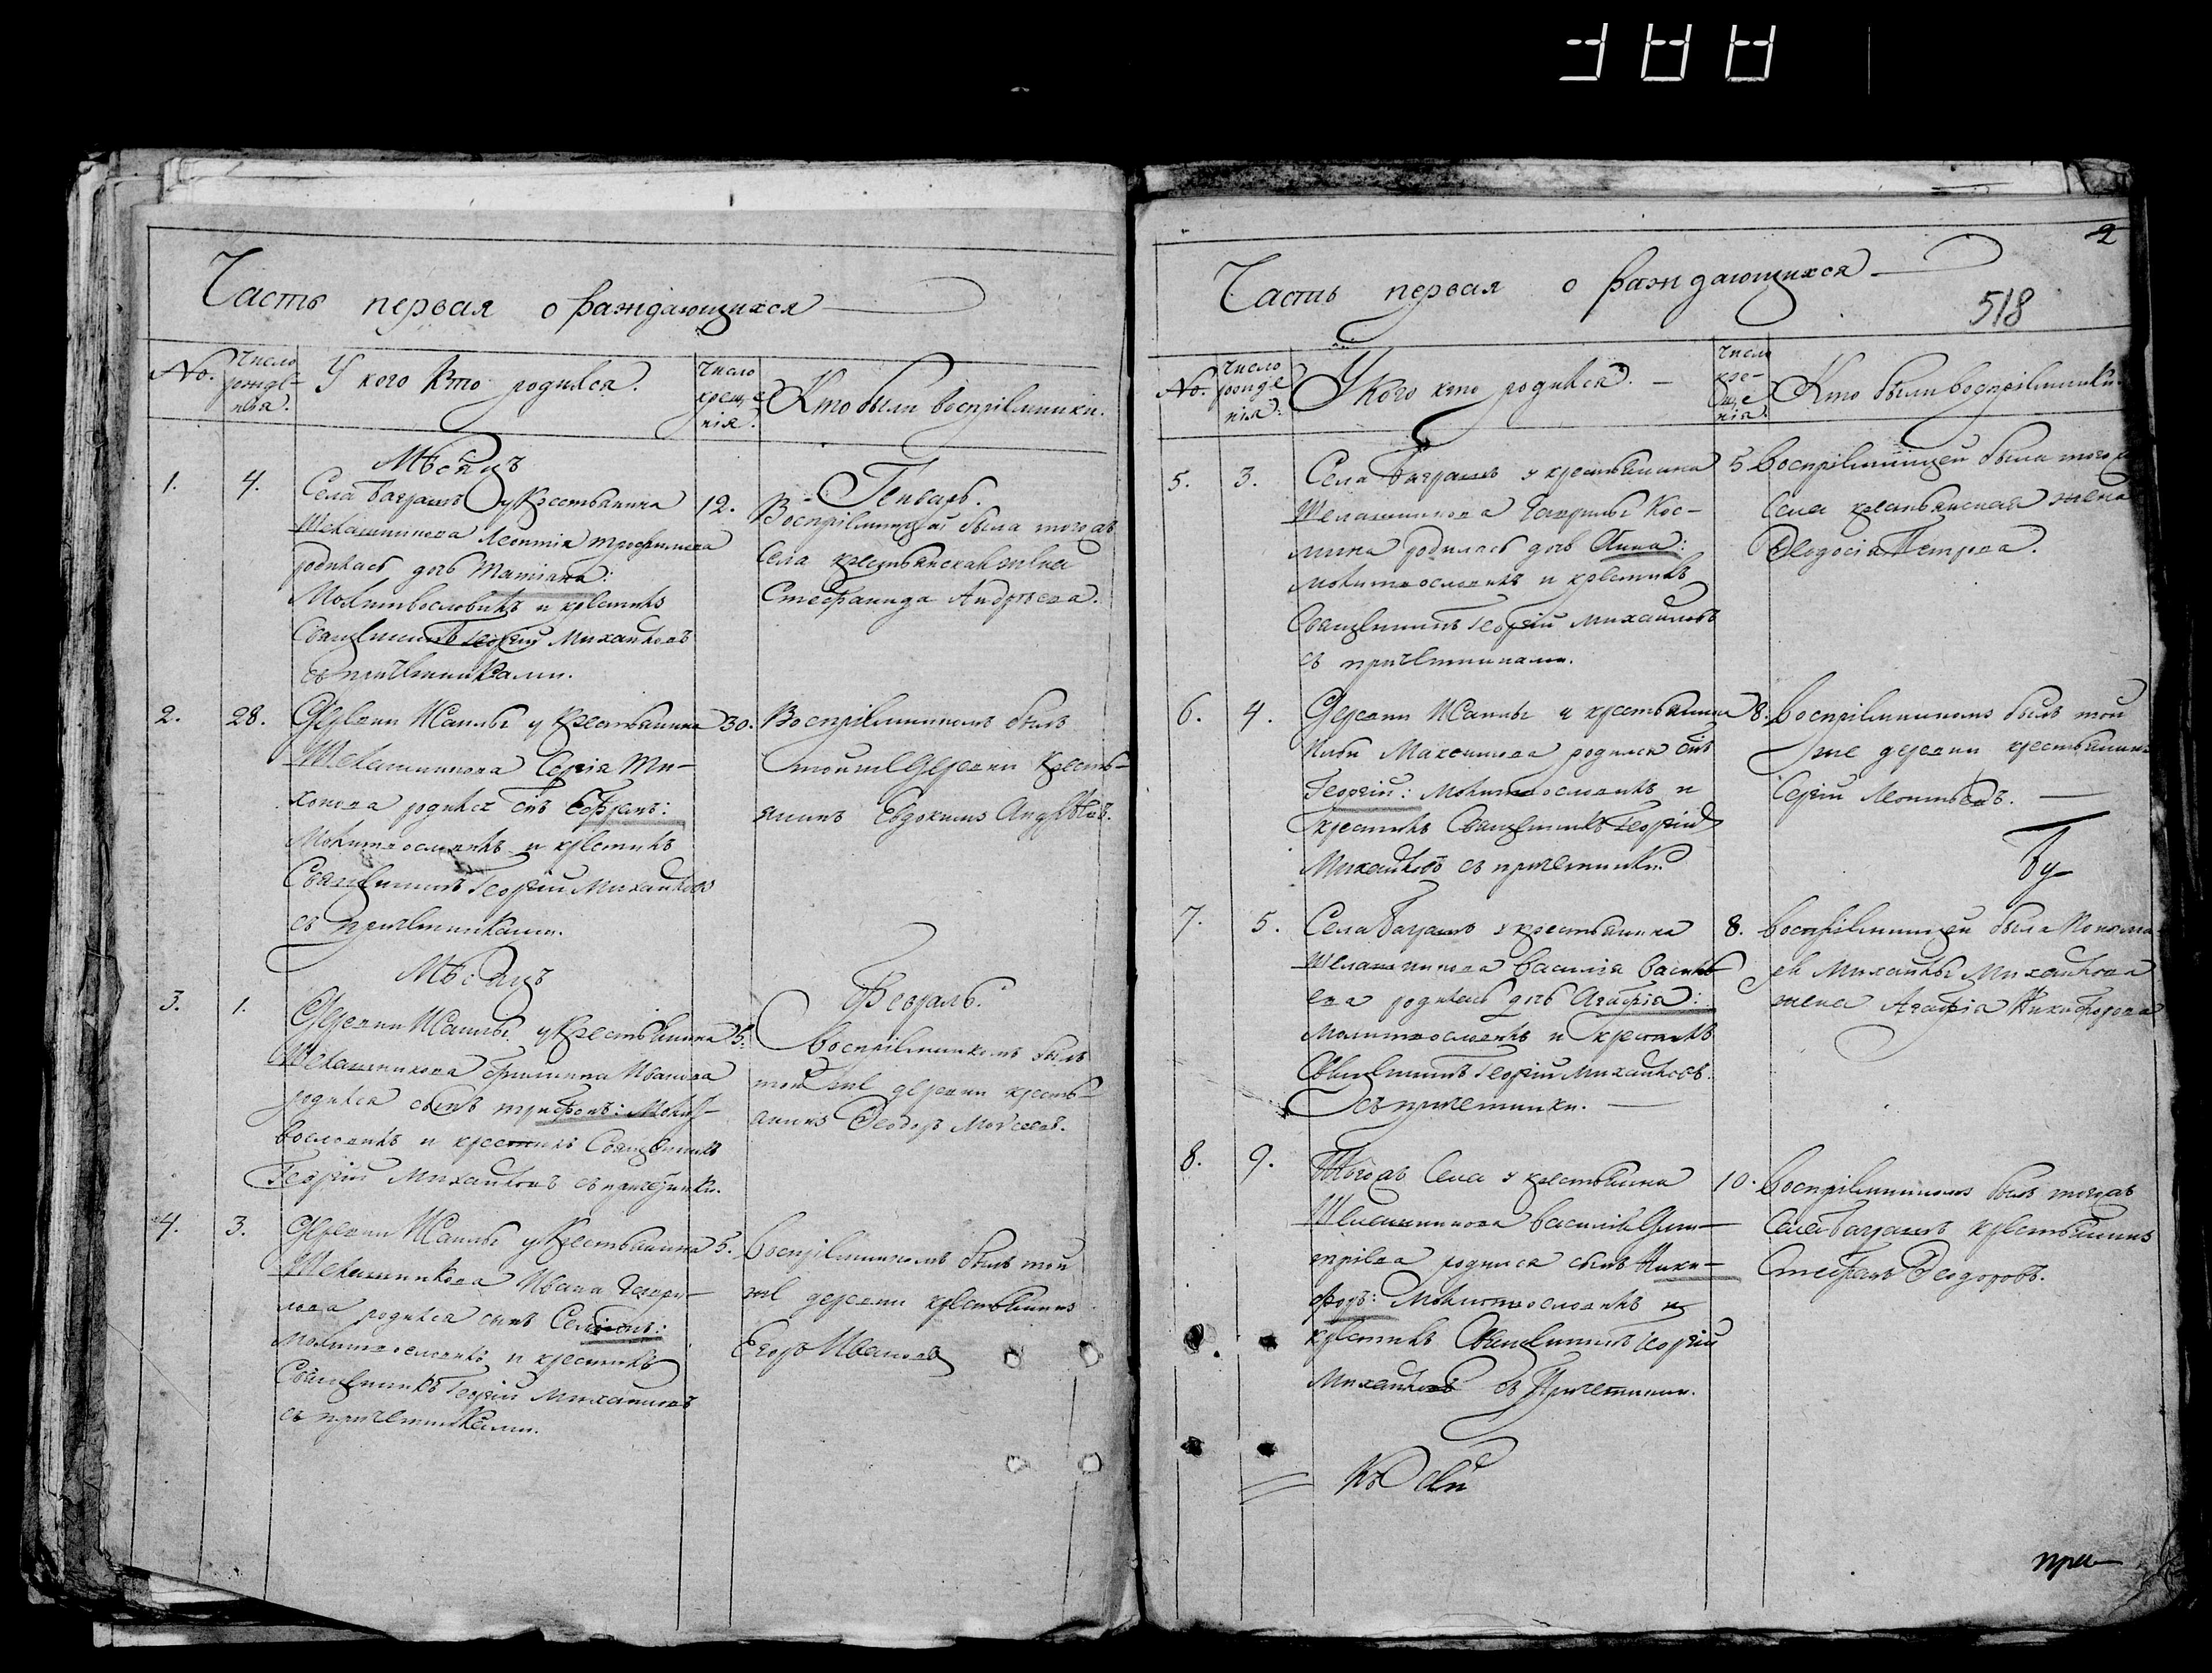 2
518
Часть первая о раждающихся
No.
Число рождения.
У кого кто родился.
Число крещения.
Кто были воспріемники.
Мѣсяцъ
Генварь.
1. 4.
Села Баграшъ у крестьянина
Шелашникова Леонтія Трофимова
родилась дочь Татіана:
Молитвословилъ и крестилъ
Священникъ Георгій Михайловъ
съ причетниками.
12.
Воспріемницей была тогожъ
села крестьянская жена
Стефанида Андреева.
2. 28.
Деревни Исаклы у крестьянина
Шелашникова Сергія Ти-
хонова родился снъ Ефремъ:
Молитвословилъ и крестилъ
Священникъ Георгій Михайловъ
съ причетниками.
30.
Воспріемникомъ былъ
тойже деревни кресть-
янинъ Евдокимъ Андрѣевъ.
Мѣсяцъ
Февраль.
3. 1.
Деревни Исаклы у крестьянина
Шелашникова Иванова
родился сынъ Трифонъ: Молит-
вословилъ и крестилъ Священникъ
Георгій Михайловъ съ причетники.
5.
Воспріемникомъ былъ
той же деревни кресть-
янинъ Феодоръ Мойсеевъ.
4. 3.
Деревни Исаклы у крестьянина
Шелашникова Ивана Гаври-
лова родился сынъ Симеонъ:
Молитвословилъ и крестилъ
Священникъ Георгій Михайловъ
съ причетниками.
5.
Воспріемникомъ былъ той
же деревни крестьянинъ
Егоръ Ивановъ
Часть первая о раждающихся
No.
Число рожденія.
У кого кто родился.
Число крещенія.
Кто были воспріемники.
5. 3.
Села Баграшъ у крестьянина
Шелашникова Гаврилы Кос-
мина родилась дочь Анна:
молитвословилъ и крестилъ
Священникъ Георгій Михайловъ
съ причетниками.
5
Воспріемницей была тогожъ
села крестьянская жена
Феодосія Петрова.
6. 4.
Деревни Исаклы у крестьянина
Ильи Максимова родился снъ
Георгій: Молитвословилъ и
крестилъ Священникъ Георгій
Михайловъ съ причетники.
8.
Воспріемникомъ былъ той
же деревни крестьянинъ
Сергій Леонтьевъ.
Бу
7. 5.
Села Баграшъ у крестьянина
Шелашникова Василія Василь-
ева родилась дочь Агафія:
Молитвословилъ и крестилъ
Священникъ Георгій Михайловъ
съ причетники.
8.
Воспріемницей была
Михайлы Михайлова
жена Агафія Никифорова
8. 9.
Тогожъ села у крестьянина
Шелашникова Василія Дми-
тріева родился сынъ Ники-
форъ: Молитвословилъ и
крестилъ Священникъ Георгій
Михайловъ съ Причетники.
10.
Воспріемникомъ былъ тогожъ
села Баграшъ крестьянинъ
Стефанъ Феодоровъ.
при